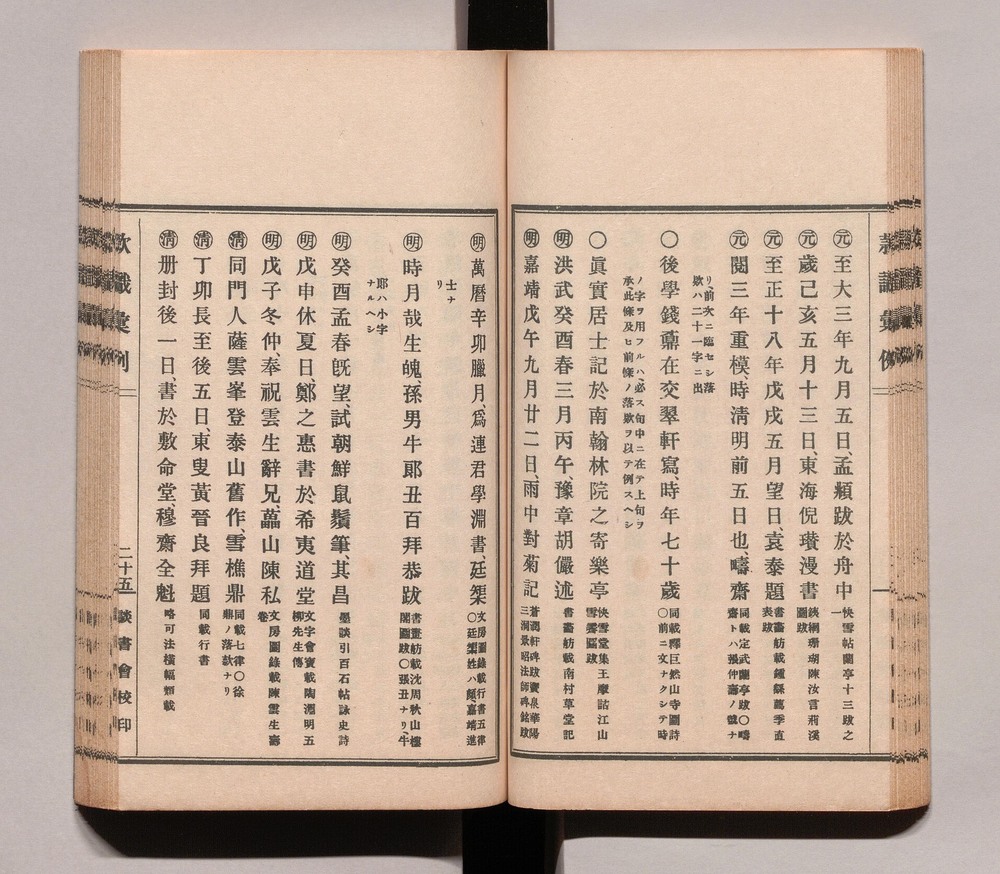 ㊄至大三年九月五日、孟頫跋於舟中 快雪帖蘭亭十三跋之一
歲己亥五月十三日、東海倪瓚漫書 鐵網珊瑚陳汝言荊溪圖跋
至正十八年戊戌五月望日、袁泰題 書畫舫載鍾繇薦季直表跋
閱三年重模、時淸明前五日也、疇齋 同載定武蘭亭跋〇疇齋トハ張仲壽ノ號ナ
リ、前次ニ臨セシ落
欵ハ二十一字ニ出
〇後學錢鼐在交翠軒寫、時年七十歲 同載釋巨然山寺圖詩〇前ニ文ナクシテ時
ノ字ヲ用フルハ、必ス句中ニ在テ上句ヲ
承、此條及ヒ前條ノ落欵ヲ以テ例スヘシ
〇眞實居士記於南翰林院之寄樂亭 快雪堂集王摩詰江山雪霽圖跋
㊔洪武癸酉春三月丙午豫章胡儼述 書畫舫載南村草堂記
嘉靖戊午九月廿二日、雨中對菊記 蒼潤軒碑跋
萬曆辛卯臘月、爲連君學淵書、廷榘 文房圖錄載行書五律〇廷榘姓ハ顧嘉靖進
士ナ
リ
時月哉生魄、孫男牛郞丑百拜恭跋 書畫舫載沈周秋山樓閣圖跋〇張丑ナリ、牛
郞ハ小字
ナルヘシ
癸酉孟春旣望、試朝鮮鼠鬚筆、其昌 墨談引百石帖詠史詩
戊申休夏日、鄭之惠書於希夷道堂 文字會寶載陶淵明五柳先生傳
戊子冬仲、奉祝雲生辭兄、藟山陳私 文房圖錄載陳雲生壽卷
同門人薩雲峯登泰山舊作、雪樵鼎 同載七律〇徐鼎ノ落欵ナリ
丁卯長至後五日、東叟黃晉良拜題 同載行書
册封後一日、書於敷命堂、穆齋全魁 略可法橫幅類載
欵識彙例
二十五
談書會校印